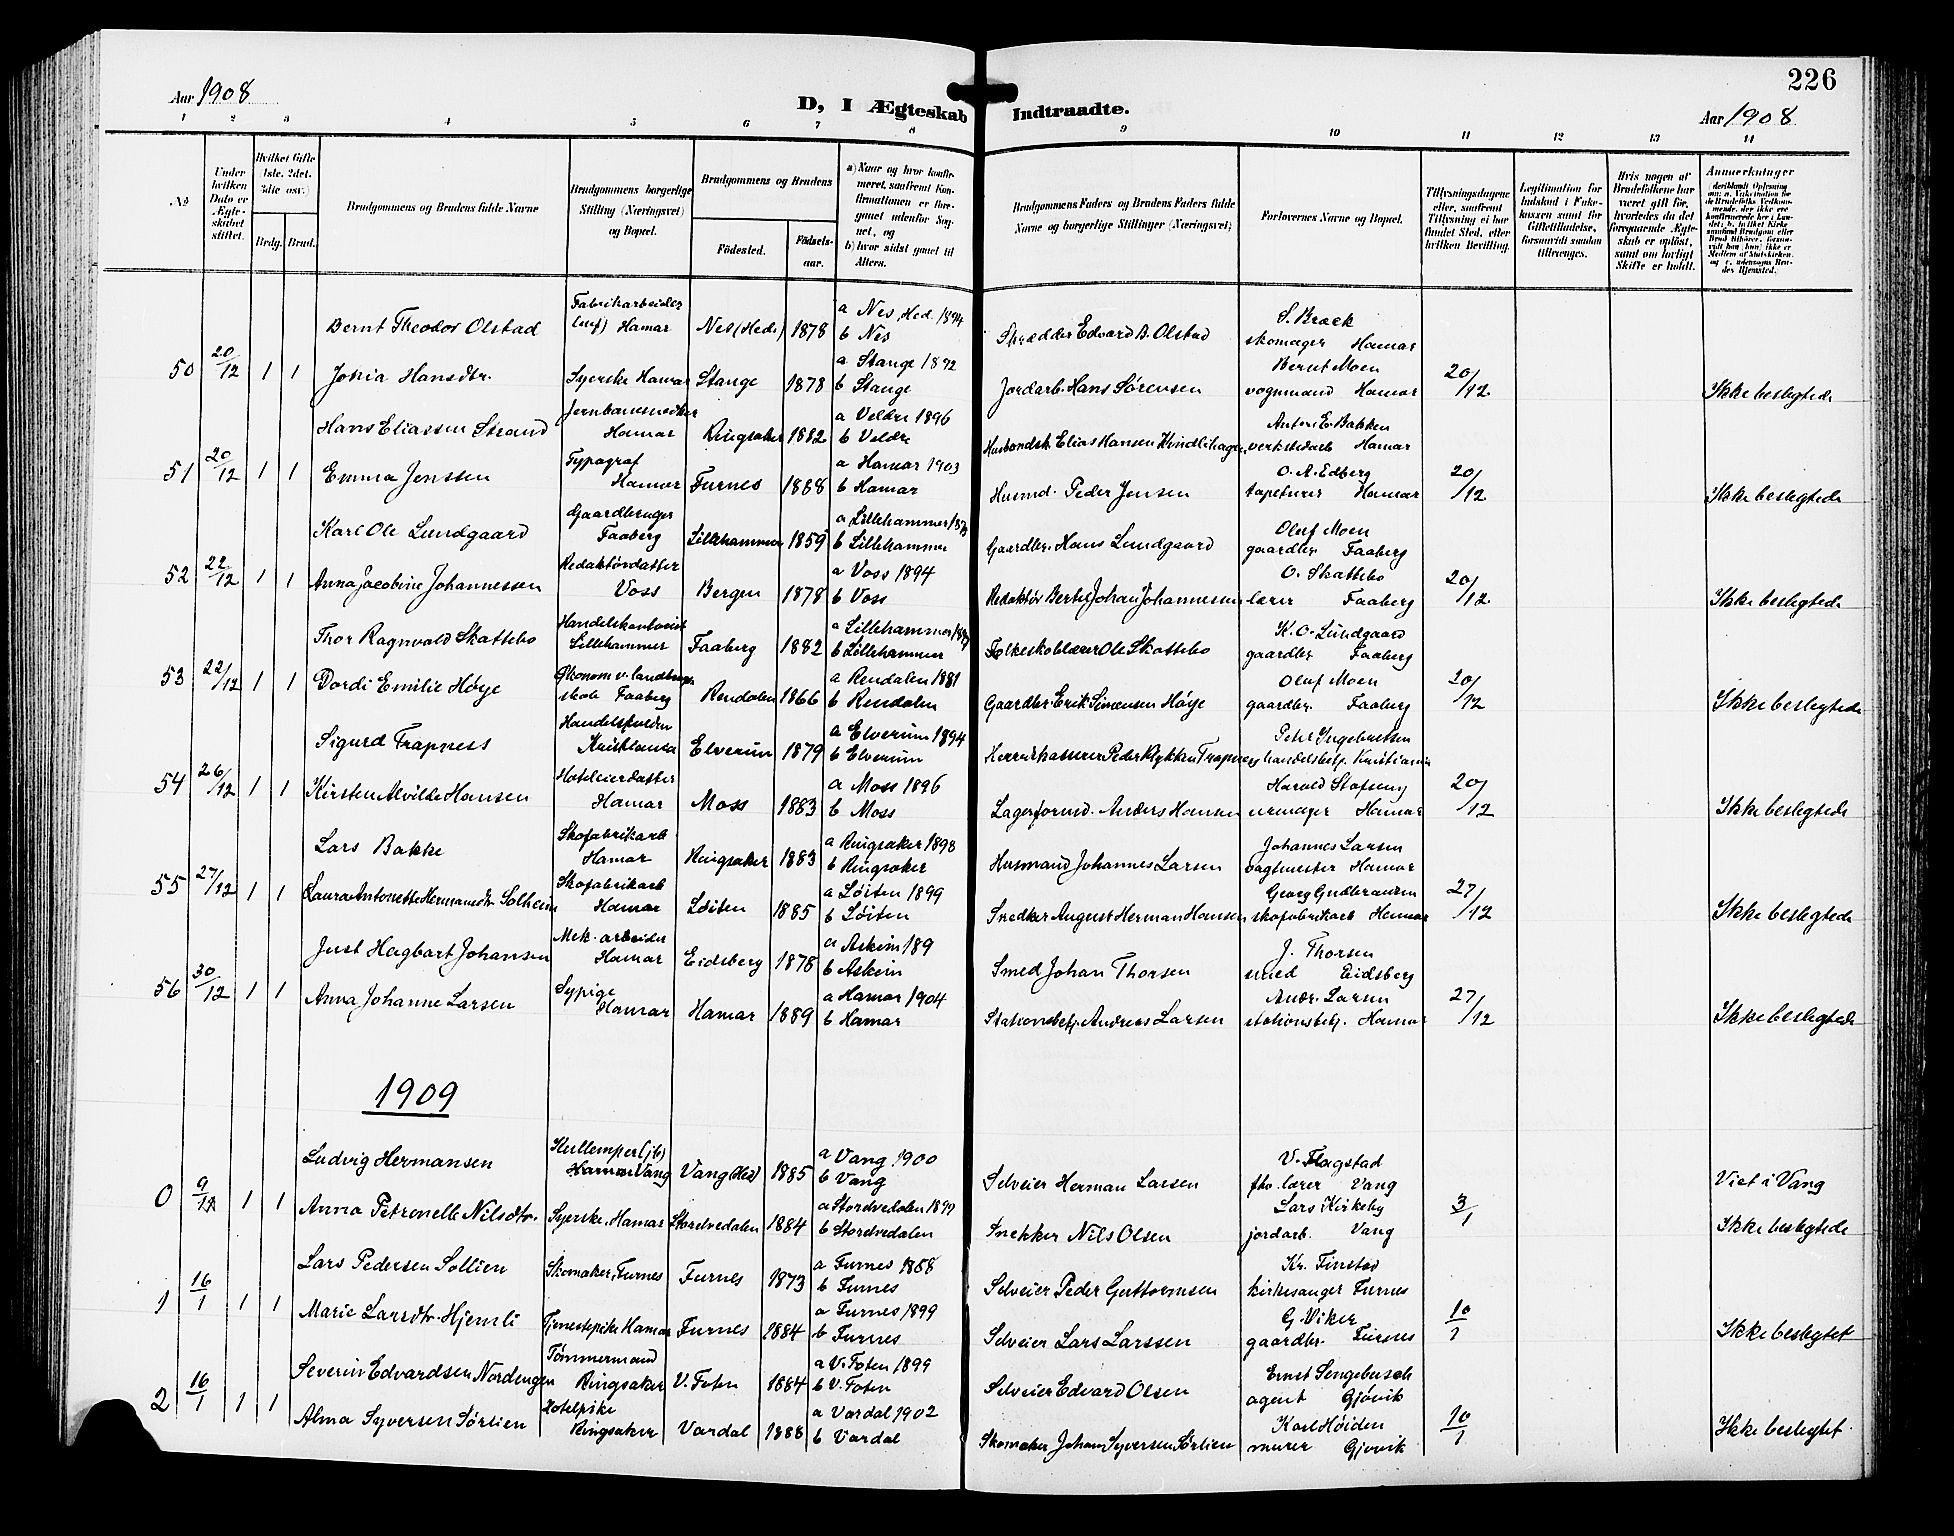 226
Aar 1908
D, I Ægteskab Indtraadte.
Aar 1908
1 2 3 4 5 6 7 8 9 10 11 12 13 14
No
Under hvilken Dato er Ægteskabet stiftet.
Hvilket Gifte (1ste, 2det, 3die osv.)
Brdg. Brud.
Brudgommens og Brudens fulde Navne
Brudgommens borgerlige Stilling (Næringsvei) og Bopæl.
Brudgommens og Brudens
Fødested.
Fødselsaar.
a) Naar og hvor konfirmeret, saafremt Konfirmationen er foregaaet udenfor Sognet, og
b) hvor sidst gaaet til Alters.
Brudgommens Faders og Brudens Faders fulde Navne og borgerlige Stillinger (Næringsvei)
Forlovernes Navne og Bopæl.
Tillysningsdagene eller, saafremt Tillysning ei har fundet Sted, efter hvilken Bevilling.
Legitimation for Indskud i Enkekassen samt for Giftetilladelse, forsaavidt saadan tiltrænges.
Hvis nogen af Brudefolkene har været gift før, hvorledes da det foregaaende Ægteskab er opløst, samt om lovligt Skifte er holdt.
Anmerkninger
Bernt Theodor Olstad Fabrikarbeider Hamar Nes (Hed.) 1878 a Nes, Hed. 1894 b Nes Skrædder Edvard B. Olstad S. Braek skomager Hamar
50 20/12 1 1 Johia Hansdtr. Syerske Hamar Stange 1878 a Stange 1892 b Stange Jordarb. Hans Sørensen Bernt Moen vognmand Hamar 20/12 Ikke beslegtede
Hans Eliassen Strand Jernbanesnedker Hamar Ringsaker 1882 a Veldre 1896 b Veldre Husbondsk. Elias Hansen Kvindlihagen Anton E. Bakken verkstedarb Hamar
51 20/12 1 1 Emma Jenssen Typograf Hamar Furnes 1888 a Hamar 1903 b Hamar Husmd. Peder Jensen O. A. Edberg tapetserer Hamar 20/12 Ikke beslegtede
Karl Ole Lundgaard Gaardbruger Faaberg Lillehammer 1859 a Lillehammer b Lillehammer Gaardbr. Hans Lundgaard Oluf Moen gaardbr. Faaberg
52 22/12 1 1 Anna Jacobine Johannessen Redaktørdatter Voss Bergen 1878 a Voss 1894 b Voss Redaktør Bertel Johan Johannesen O. Skattebo lærer Faaberg 20/12 Ikke beslegtede
Thor Ragnvald Skattebo Handelskontorist Lillehammer Faaberg 1882 a Lillehammer b Lillehammer Folkeskolelærer Ole Skattebo K. O. Lundgaard gaardbr. Faaberg
53 22/12 1 1 Dordi Emilie Høye Økonom v. landbrugsskole Faaberg Rendalen 1866 a Rendalen 1881 b Rendalen Gaardbr. Erik Simensen Høye Oluf Moen gaardbr. Faaberg 20/12 Ikke beslegtede
Sigurd Trapness Handelsfuldm Kristiania Elverum 1879 a Elverum 1894 b Elverum Herredskasserer Peder Klykken Trapness Pehr Ingebretsen handelsbetj. Kristiania
54 26/12 1 1 Kirsten Alvilde Hansen Hoteleierdatter Hamar Moss 1883 a Moss 1896 b Moss Lagerformd. Anders Hansen Harald Stafseng urmager Hamar 20/12 Ikke beslegtede
Lars Bakke Skofabrikarb Hamar Ringsaker 1883 a Ringsaker 1898 b Ringsaker Husmand Johannes Larsen Johannes Larsen vagtmester Hamar
55 27/12 1 1 Laura Antonette Hermansdtr Solheim Skofabrikarb Hamar Løiten 1885 a Løiten 1899 b Løiten Snedker August Herman Hansen Georg Gudbransen skofabrikarb Hamar 27/12 Ikke beslegtede
Just Hagbart Johansen Mek. arbeider Hamar Eidsberg 1878 a Askim 189 b Askim Smed Johan Thorsen J. Thorsen smed Eidsberg
56 30/12 1 1 Anna Johanne Larsen Sypige Hamar Hamar 1889 a Hamar 1904 b Hamar Stationsbetj. Andreas Larsen Andr. Larsen stationsbetj. Hamar 27/12 Ikke beslegtede
1909
Ludvig Hermansen Vang Vang (Hed) 1885 a Vang 1900 b Vang Selveier Herman Larsen V. Flagstad fhv. lærer Vang Viet i Vang
0 9/1 1 1 Anna Petronelle Nilsdtr. Syerske, Hamar Storelvedalen 1884 a Storelvedalen 1899 b Storelvedalen Snekker Nils Olsen Lars Kirkeby jordarb. Vang 3/1 Ikke beslegtede
Lars Pedersen Sollien Skomaker, Furnes Furnes 1873 a Furnes 1888 b Furnes Selveier Peder Guttormsen Kr. Finstad kirkesanger Furnes
1 16/1 1 1 Marie Larsdtr. Hjemli Tjenestepike Hamar Furnes 1884 a Furnes 1899 b Furnes Selveier Lars Larssen G. Viker gaardbr. Furnes 10/1 Ikke beslegtet
Severin Edvardsen Nordengen Tømmermand Ringsaker V. Toten 1884 a V. Toten 1899 b V. Toten Selveier Edvard Olsen Ernst Sengebusch agent Gjøvik
2 16/1 1 1 Alma Syversen Sørlien Hotelpike Ringsaker Vardal 1888 a Vardal 1902 b Vardal Skomaker Johan Syversen Sørlien Karl Høiden murer Gjøvik 10/1 Ikke beslegtet